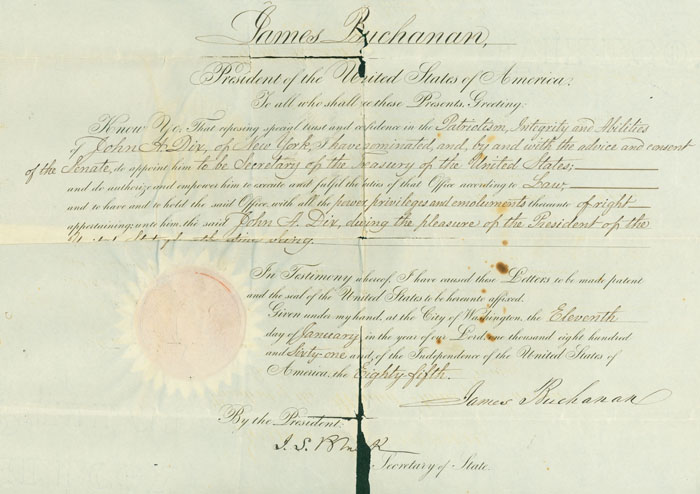 James Buchanan,
President of the United States of America,
To all who shall see these Presents, Greeting:
Know Ye, That reposing special trust and confidence in the Patriotism, Integrity and Abilities
of John A. Dix, of New York, I have nominated, and, by and with the advice and consent
of the Senate, do appoint him to be Secretary of the Treasury of the United States;
and do authorize and empower him to execute and fulfil the duties of that Office according to Law,
and to have and to hold the said Office, with all the power, privileges and emoluments thereunto of right
appertaining unto him the said John A. Dix, during the pleasure of the President of the
United States for the time being.
In Testimony whereof, I have caused these Letters to be made patent
and the seal of the United States to be hereunto affixed.
Given under my hand, at the City of Washington, the Eleventh
day of January, in the year of our Lord, one thousand eight hundred
and Sixty-one and, of the Independence of the United States of
America, the Eighty fifth.
James Buchanan
By the President:
J. S. Black
Secretary of State.